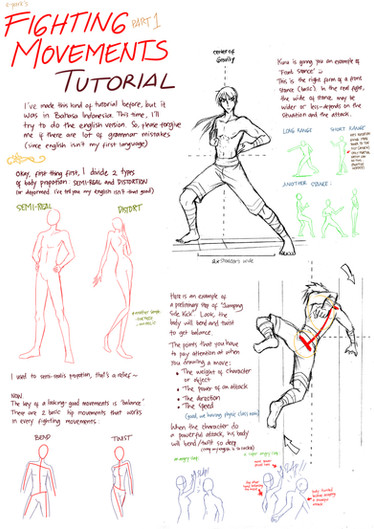 FIGHTING
PART 1
MOVEMENTS
TUTORIAL
I've made this kind of tutorial before, but it
was in Bahasa Indonesia. This time, I'll
try to do the english version. So, please forgive
me if there are lot of grammar mistakes
(since english isn't my first language)
Okay, first thing first, I divide 2 types
of body proportion: SEMI-REAL and DISTORTION
(or deformed. I've tell you my english isn't that good)
SEMI-REAL
DISTORT
I used to semi-realis proportion, that's a relief~
NOW,
The key of a looking-good movements is "balance"
There are 2 basic hip movements that works
in every fighting movements:
BEND
TWIST
center of
Gravity
is going give you an example of
"Front Stance"
This is the right form of a front
stance (basic). In the real fight,
the wide of stance, may be
wider or less - depends on the
situation and the attack.
LONG RANGE
SHORT RANGE
ANOTHER STANCE:
2x shoulders wide
Here is an example of
a preliminary step of "Jumping
Side Kick". Look, the
body will bend and twist
to get balance.
The points that you have
to pay attention at when
you drawing a move:
• The weight of character
or object
• The power of an attack
• The direction
• The speed
(Good, we having physic class now)
When the character do
a powerful attack, his body
will bend/twist so deep